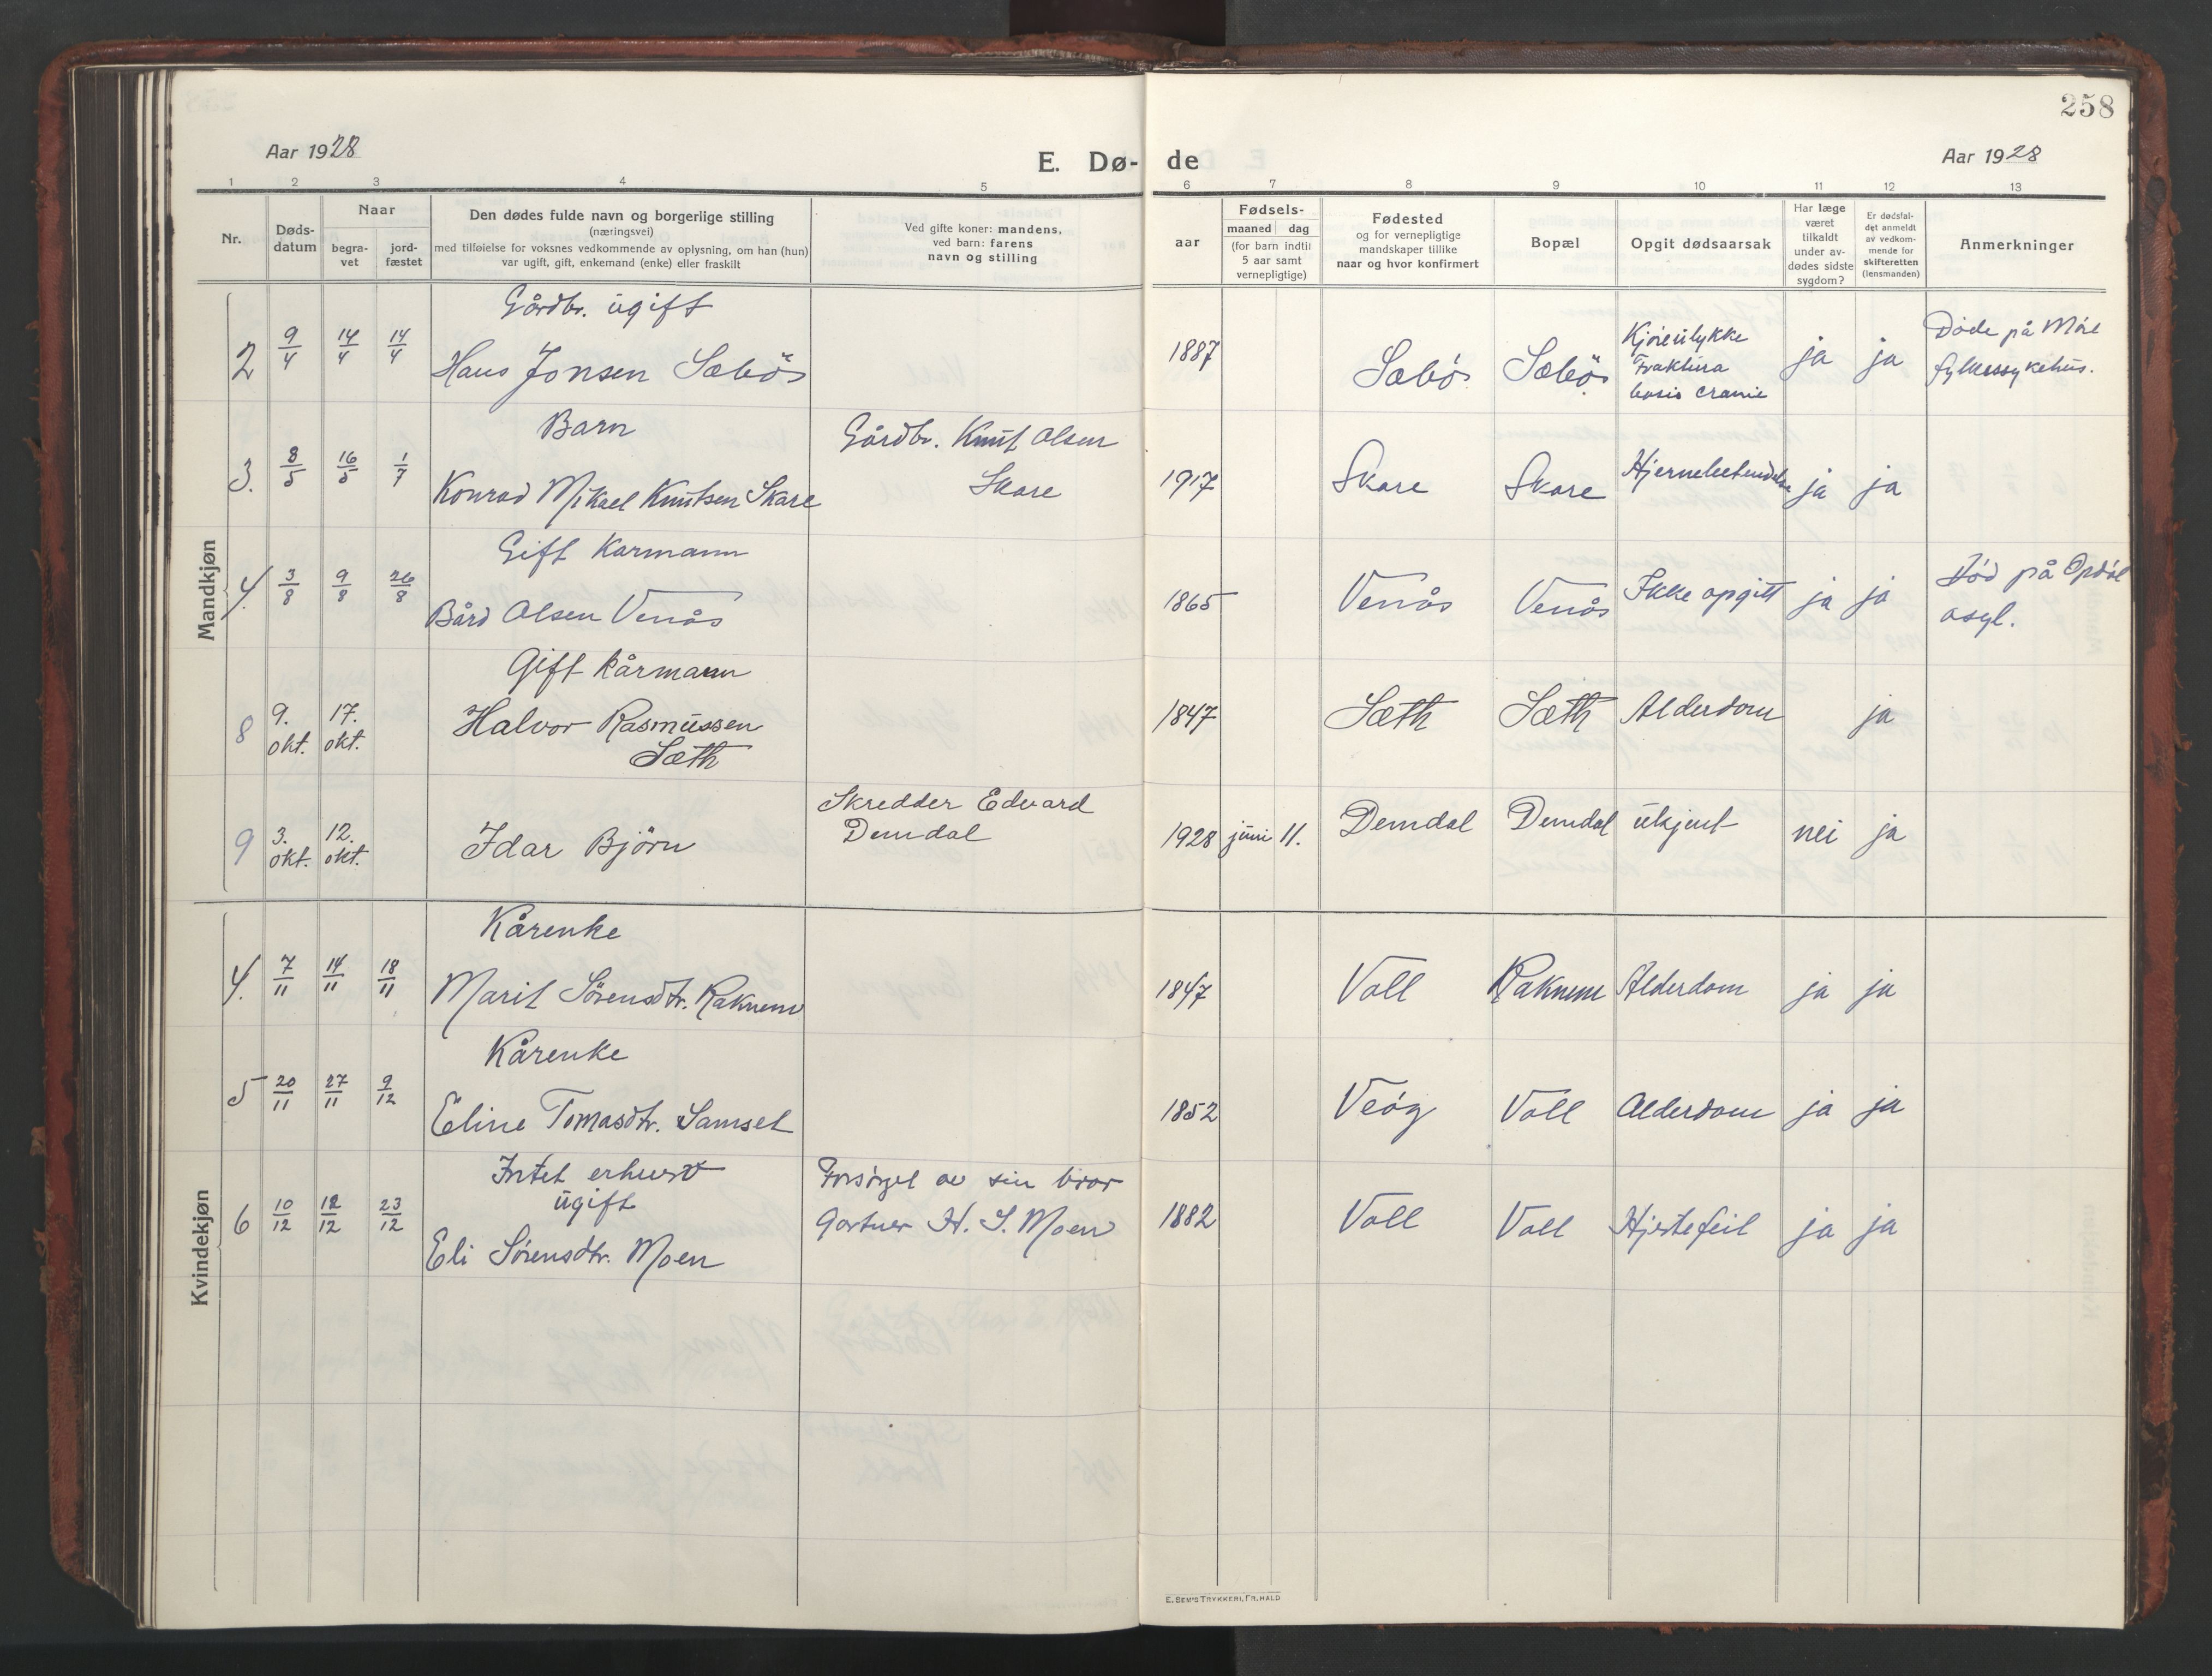 258
Aar 1928
E. Dø- de
Aar 1928
1 2 3 4 5 6 7 8 9 10 11 12 13
Nr.
Døds-
datum
Naar
begra-
vet
jord-
fæstet
Den dødes fulde navn og borgerlige stilling
(næringsvei)
med tilføielse for voksnes vedkommende av oplysning, om han (hun)
var ugift, gift, enkemand (enke) eller fraskilt
Ved gifte koner: mandens,
ved barn: farens
navn og stilling
aar
Fødsels-
maaned dag
(for barn indtil
5 aar samt
vernepligtige)
Fødested
og for vernepligtige
mandskaper tillike
naar og hvor konfirmert
Bopæl
Opgit dødsaarsak
Har læge
været
tilkaldt
under av-
dødes sidste
sygdom?
Er dødsfal-
det anmeldt
av vedkom-
mende for
skifteretten
(lensmanden)
Anmerkninger
Mandkjøn
Gårdbr. ugift
2 9/4 14/4 14/4 Hans Jonsen Sæbös 1887 Sæbö Sæbös
Kjøreulykke
Fraktura
basis cranie
ja ja
Døde på Møre
fylkessykehus.
Barn
3. 8/5 16/5 1/7 Konrad Mikael Knutsen Skare
Gårdbr. Knut Olsen
Skare
1917 Skare Skare Hjernebetendelse ja ja
Gift Karmann
4. 3/8 9/8 26/8 Bård Olsen Venås 1865 Venås Venås Ikke opgitt ja ja
Död på Opdöl
asyl.
Gift kårmann
8 9. okt. 17. okt. Halvor Rasmussen
Sæth
1847 Sæth Sæth Alderdom ja
9 3. okt. 12. okt. Idar Björn
Skredder Edvard
Demdal
1928 juni 11. Demdal Demdal ukjent nei ja
Kvindekjøn
Kårenke
4. 7/11 14/11 18/11 Marit Sörensdtr. Raknem 1847 Voll Raknem Alderdom ja ja
Kårenke
5 20/11 27/11 9/12 Eline Tomasdtr. Samset 1852 Veög Voll Alderdom ja ja
Intet erhverv
ugift
6 10/12 18/12 23/12 Eli Sörensdtr. Moen
Forsörget av sin bror
Gartner H. S. Moen
1882 Voll Voll Hjertefeil ja ja
E. SEM'S TRYKKERI, FR.HALD